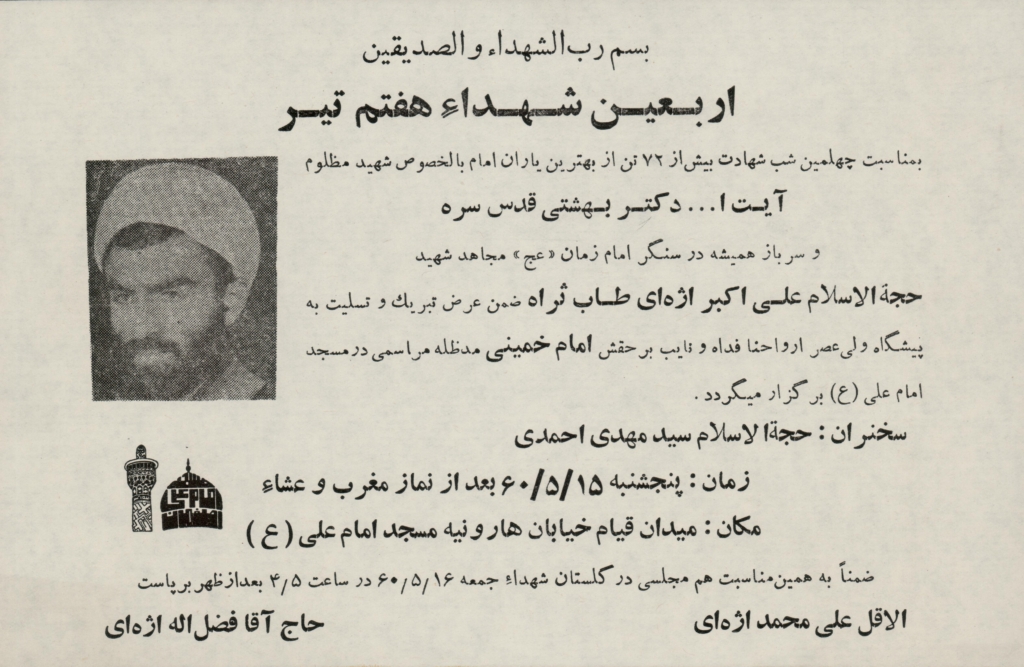 بسم رب الشهداء والصدیقین
اربعین شهداءِ هفتم تیر
بمناسبت چهلمین شب شهادت بیش از ۷۲ تن از بهترین یاران امام بالخصوص شهید مظلوم
آیت ا... دکتر بهشتی قدس سره
و سرباز همیشه در سنگر امام زمان «عج» مجاهد شهید
حجة الاسلام علی اکبر اژه‌ای طاب ثراه ضمن عرض تبریك و تسلیت به
پیشگاه ولی‌عصر ارواحنا فداه و نایب برحقش امام خمینی مدظله مراسمی در مسجد
امام علی (ع) برگزار میگردد .
سخنران : حجةالاسلام سید مهدی احمدی
زمان : پنجشنبه ۶۰/۵/۱۵ بعد از نماز مغرب و عشاءِ
مکان : میدان قیام خیابان هارونیه مسجد امام علی ( ع )
ضمناً به همین‌مناسبت هم مجلسی در گلستان شهداءِ جمعه ۶۰/۵/۱۶ در ساعت ۴/۵ بعدازظهر برپاست
الاقل علی محمد اژه‌ای
حاج آقا فضل‌اله اژه‌ای